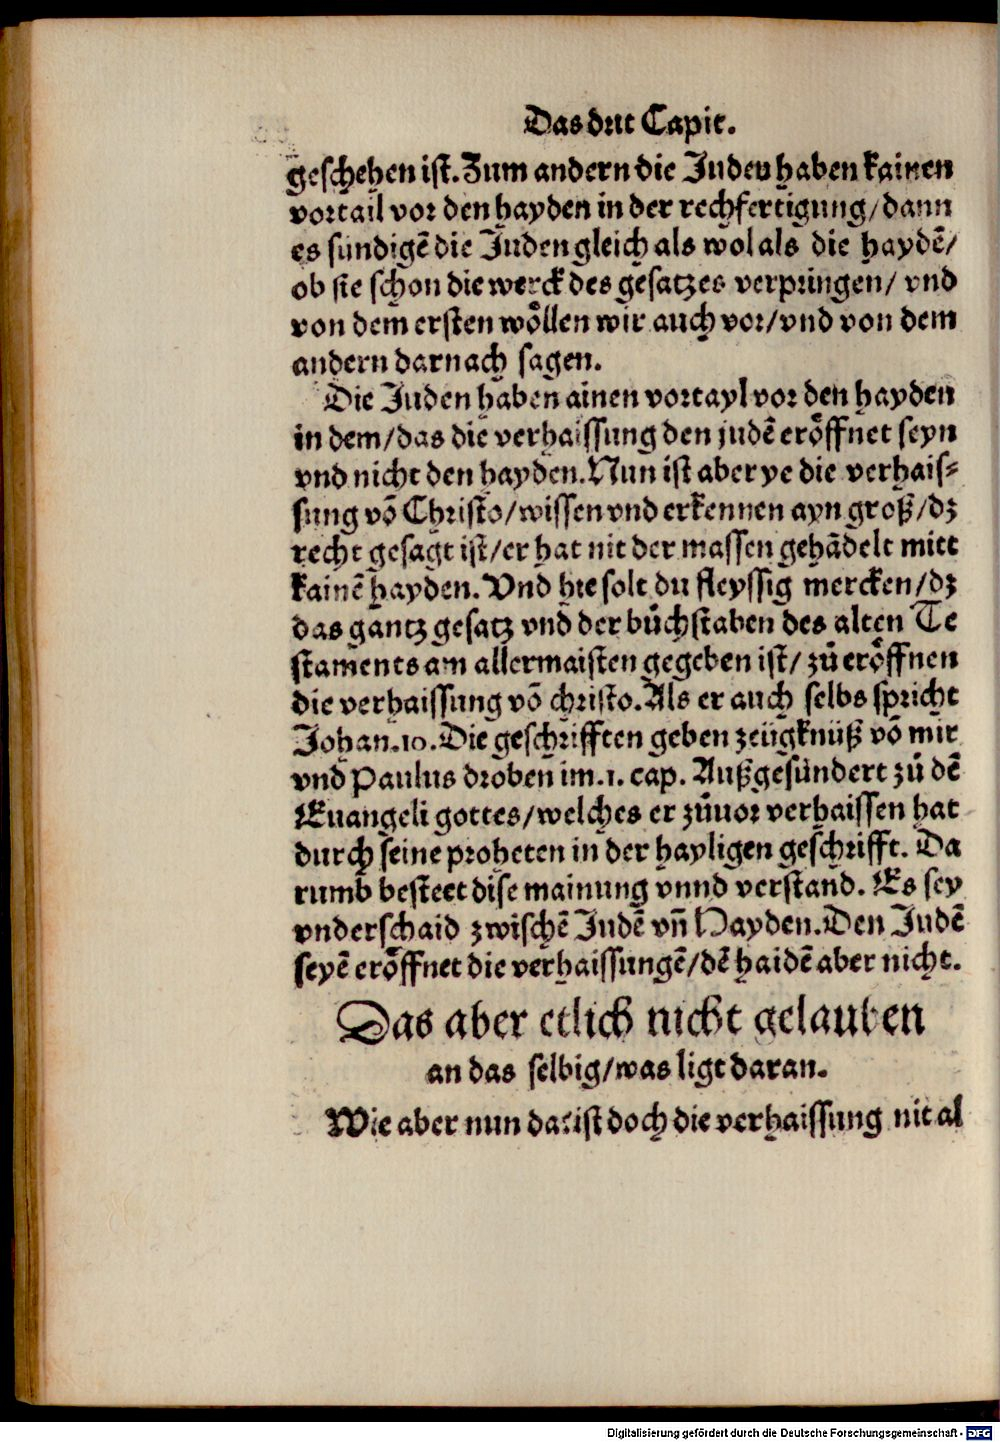 Das drit Capit.
geschehen ist. Zum andern die Juden haben kainen
vortail vor den hayden in der rechfertigung/ dann
es sündigē die Juden gleich als wol als die haydē/
ob sie schon die werck des gesatzes verpringen/ vnd
von dem ersten wöllen wir auch vor/ vnd von dem
andern darnach sagen.
Die Juden haben ainen vortayl vor den hayden
in dem/ das die verhaissung den judē eröffnet seyn
vnd nicht den hayden. Nun ist aber ye die verhais⸗
sung vō Christo/ wissen vnd erkennen ayn groß/ dz
recht gesagt ist/ er hat nit der massen gehādelt mitt
kainē hayden. Vnd hie solt du fleyssig mercken/ dz
das gantz gesatz vnd der bůchstaben des alten Te
staments am allermaisten gegeben ist/ zů eröffnen
die verhaissung vō christo. Als er auch selbs spricht
Johan. 10. Die geschrifften geben zeügknüß vō mir
vnd Paulus droben im. 1. cap. Außgesündert zů dē
Euangeli gottes/ welches er zůuor verhaissen hat
durch seine proheten in der hayligen geschrifft. Da
rumb besteet dise mainung vnnd verstand. Es sey
vnderschaid zwischē Judē vn̄ Hayden. Den Judē
seyē eröffnet die verhaissungē/ dē haidē aber nicht.
Das aber etlich nicht gelauben
an das selbig/ was ligt daran.
Wie aber nun da: ist doch die verhaissung nit al
Digitalisierung gefördert durch die Deutsche Forschungsgemeinschaft - DFG